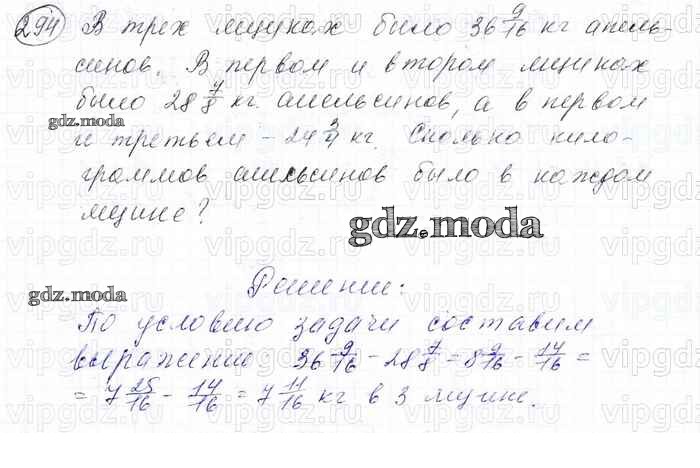 294 В трех ящиках было 36 9/16 кг апель-
синов. В первом и втором ящиках
было 28 7/8 кг. апельсинов, а в первом
gdz.moda
и третьем - 24 3/4 кг. Сколько кило-
граммов апельсинов было в каждом
ящике?
gdz.moda
gdz.moda
Решение:
По условию задачи составим
выражение 36 9/16 - 28 7/8 = 8 9/16 - 14/16 =
= 7 25/16 - 14/16 = 7 11/16 кг в 3 ящике.
vipgdz.ru